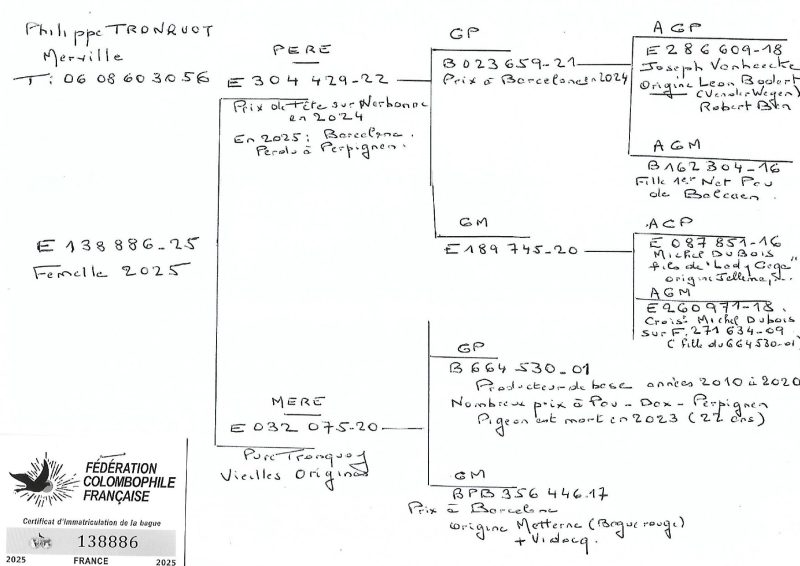 Philippe TRONQUOY
Merville
T: 06 08 60 30 56
E 138 886-25
Femelle 2025
PERE
E 304 429-22
Prix de tête sur Narbonne
en 2024
En 2025 : Barcelona.
Perdu à Perpignan.
MERE
E 032 075-20
Pure Tronquoy
Vieilles Origines
GP
B 023 659-21
Prix à Barcelone en 2024
GM
E 189 745-20
GP
B 664 530-01
Producteur de base années 2010 à 2020
Nombreux prix à Pau - Dax - Perpignan
Pigeon est mort en 2023 (22 ans)
GM
BPB 356 446.17
Prix à Barcelona
origine Metterne (Bague rouge)
+ Vidocq.
AGP
E 286 609-18
Joseph Vanheecke
Origine Leon Bodart
(Vander Wegen)
Robert Ben
AGM
B 162 304-16
Fille 1er Nat Pau
de Balcaen.
AGP
E 087 851-16
Michel DUBOIS
fils de "Lady Gaga"
origine Jellema,
AGM
E 260 971-18.
Crois^t Michel Dubois
sur F. 271 634-09
(fille du 664530-01)
FÉDÉRATION
COLOMBOPHILE
FRANÇAISE
Certificat d'immatriculation de la bague
138886
2025 FRANCE 2025